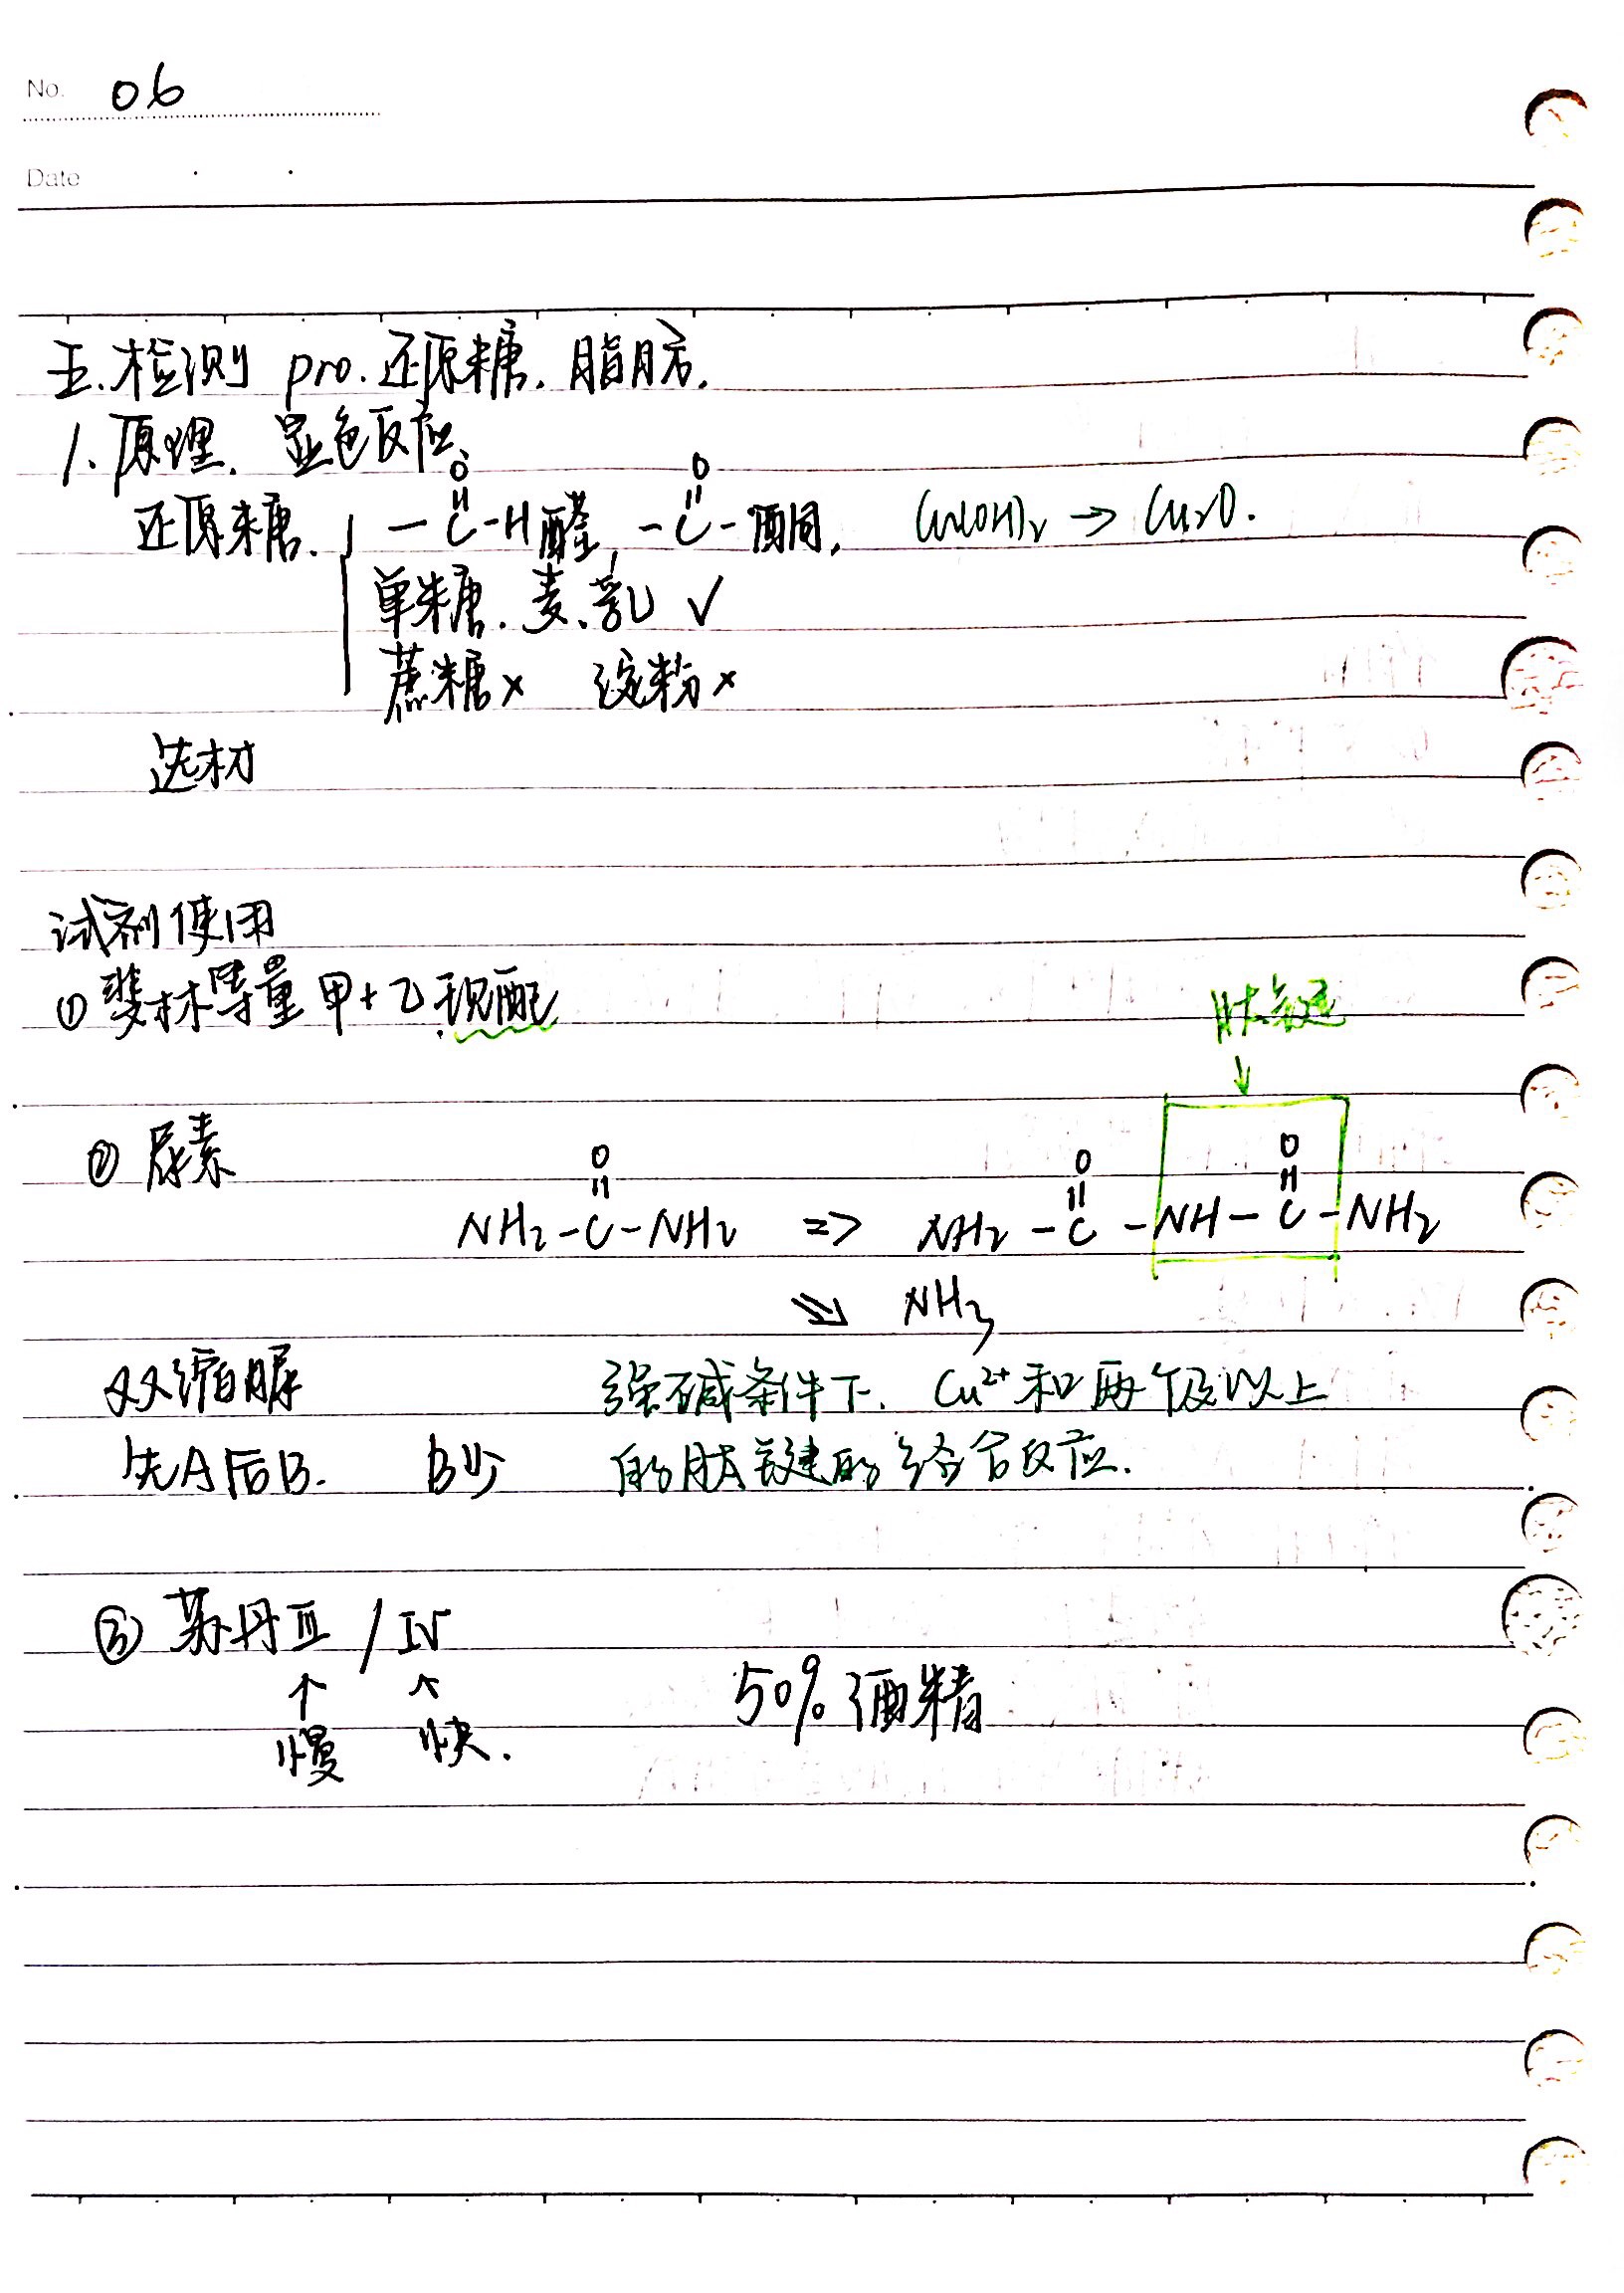 No. 06
Date
五.检测 pro.还原糖.脂肪.
1.原理. 显色反应.
O O
|| ||
还原糖. —C-H醛, -C-酮, Cu(OH)₂ → Cu₂O.
单糖.麦.乳 ✓
蔗糖× 淀粉×
选材
试剂使用
①斐林等量 甲+乙现配
肽键
↓
② 尿素
O O O
|| || ||
NH₂-C-NH₂ => NH₂-C-NH-C-NH₂
⇘ NH₃
双缩脲 强碱条件下. Cu²⁺和两个及以上
先A后B. B少 的肽键的络合反应.
③ 苏丹Ⅲ/Ⅳ
↑ ↑ 50%酒精
慢 快.